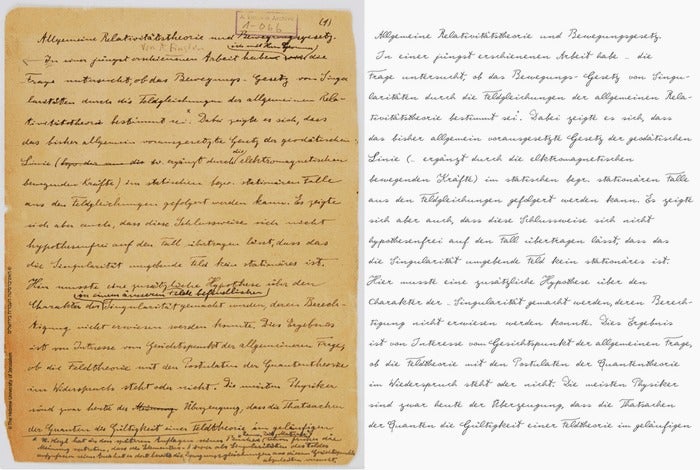 Einstein Archive
1-066
(1)
Allgemeine Relativitätstheorie und Bewegungsgesetz.
Von A. Einstein
In einer jüngst erschienenen Arbeit die
Frage untersucht, ob das Bewegungs-Gesetz von Singu-
laritäten durch die Feldgleichungen der allgemeinen Rela-
tivitätstheorie bestimmt sei. Dabei zeigte es sich, dass
das bisher allgemein vorausgesetzte Gesetz der geodätischen
Linie ergänzt durch die elektromagnetischen
bewegenden Kräfte) im statischen bezw. stationären Falle
aus den Feldgleichungen gefolgert werden kann. Es zeigte
sich aber auch, dass diese Schlussweise sich nicht
hypothesenfrei auf den Fall übertragen lässt, dass das
die Singularität umgebende Feld kein stationäres ist.
Hier musste eine zusätzliche Hypothese über den
in einem äusseren Felde befindlichen
Charakter der Singularität gemacht werden, deren Berech-
tigung nicht erwiesen werden konnte. Dies Ergebnis
ist von Interesse vom Gesichtspunkt der allgemeinen Frage,
ob die Feldtheorie mit den Postulaten der Quantentheorie
im Widerspruch steht oder nicht. Die meisten Physiker
sind zwar heute der Überzeugung, dass die Thatsachen
der Quanten die Gültigkeit einer Feldtheorie im geläufigen
© The Hebrew University of Jerusalem
Allgemeine Relativitätstheorie und Bewegungsgesetz.
In einer jüngst erschienenen Arbeit habe - die
Frage untersucht, ob das Bewegungs- Gesetz von Singu-
laritäten durch die Feldgleichungen der allgemeinen Rela-
tivitätstheorie bestimmt sei. Dabei zeigte es sich, dass
das bisher allgemein vorausgesetzte Gesetz der geodätischen
Linie (.. ergänzt durch die elektromagnetischen
bewegenden Kräfte) im statischen bezr. stationären Falle
aus den Feldgleichungen gefolgert werden kann. Es zeigte
sich aber auch, dass diese Schlussweise sich nicht
hypothesenfrei auf den Fall übertragen lässt, dass das
die Singularität umgebende Feld kein stationäres ist.
Hier musste eine zusätzliche Hypothese über den
Charakter der - Singularität gemacht werden, deren Berech-
tigung nicht erwiesen werden konnte. Dies Ergebnis
ist von Interesse vom Gesichtspunkt der allgemeinen Frage,
ob die Feldtheorie mit den Postulaten der Quantentheorie
im Wiederspruch steht oder nicht. Die meisten Physiker
sind zwar heute der Überzeugung, dass die Thatsachen
der Quanten die Gültigkeit einer Feldtheorie im geläufigen